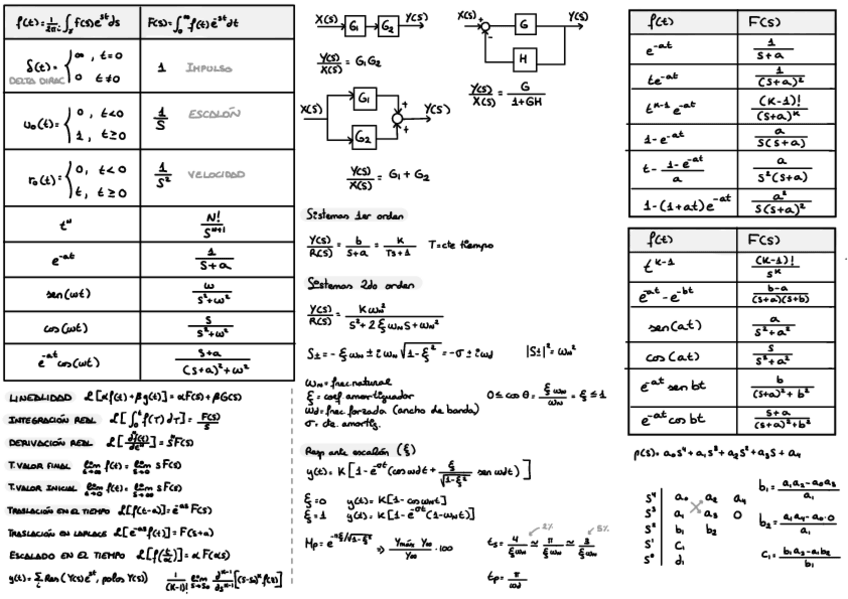 f(t)=1/2πi ∫ F(s)e^st ds    F(s)=∫₀^∞ f(t)e^st dt
δ(t)= { ∞, t=0 ; 0 t≠0    1 IMPULSO
DELTA DIRAC
u₀(t)= { 0, t<0 ; 1, t≥0    1/s ESCALÓN
r₀(t)= { 0, t<0 ; t, t≥0    1/s² VELOCIDAD
t^N    N!/s^(N+1)
e^-at    1/(s+a)
sen(ωt)    ω/(s²+ω²)
cos(ωt)    s/(s²+ω²)
e^-at cos(ωt)    (s+a)/((s+a)²+ω²)
LINEALIDAD ℒ[αf(t)+βg(t)]=αF(s)+βG(s)
INTEGRACIÓN REAL ℒ[∫₀^t f(τ)dτ]=F(s)/s
DERIVACIÓN REAL
T.VALOR FINAL
T.VALOR INICIAL
TRASLACIÓN EN EL TIEMPO ℒ[f(t-a)]=e^-as F(s)
TRASLACIÓN EN LAPLACE ℒ[e^-at f(t)]=F(s+a)
ESCALADO EN EL TIEMPO ℒ[f(t/α)]=αF(αs)
y(t)=Σ Res(Y(s)e^st, polos Y(s))
X(s) G₁ G₂ Y(s)
Y(s)/X(s) = G₁G₂
X(s) + - G H Y(s)
Y(s)/X(s) = G/(1+GH)
X(s) G₁ G₂ + + Y(s)
Y(s)/X(s) = G₁+G₂
Sistemas 1er orden
Y(s)/R(s) = b/(s+a) = K/(Ts+1)    T=cte tiempo
Sistemas 2do orden
Y(s)/R(s) = Kω_N²/(s²+2ξω_N s+ω_N²)
s± = -ξω_N ± iω_N√(1-ξ²) = -σ ± iωd    |s±|²=ω_N²
ω_N=frec natural
ξ=coef amortiguador    0≤cos θ = ξω_N/ω_N = ξ ≤1
ωd=frec forzada (ancho de banda)
σ= de. amortig.
Resp ante escalón (ξ)
y(t)= K[1-e^-σt(cos ωdt + ξ/√(1-ξ²) sen ωdt)]
ξ=0 y(t)=K[1-cos ω_N t]
ξ=1 y(t)=K[1-e^-σt(1-ω_N t)]
Mp=e^-πξ/√(1-ξ²) ⇒ (Ymáx Y∞)/Y∞ ·100
ts = 4/ξω_N ≃ π/ξω_N ≃ 3/ξω_N
2% 5%
tp = π/ωd
f(t)    F(s)
e^-at    1/(s+a)
te^-at    1/(s+a)²
t^(K-1) e^-at    (K-1)!/(s+a)^K
1-e^-at    a/(s(s+a))
t-(1-e^-at)/a    a/(s²(s+a))
1-(1+at)e^-at    a²/(s(s+a)²)
f(t)    F(s)
t^(K-1)    (K-1)!/s^K
e^-at-e^-bt    (b-a)/((s+a)(s+b))
sen(at)    a/(s²+a²)
cos(at)    s/(s²+a²)
e^-at sen bt    b/((s+a)²+b²)
e^-at cos bt    (s+a)/((s+a)²+b²)
p(s)= a₀s⁴+a₁s³+a₂s²+a₃s+a₄
s⁴ a₀ a₂ a₄    b₁= (a₁a₂-a₀a₃)/a₁
s³ a₁ a₃ 0
s² b₁ b₂    b₂= (a₁a₄-a₀·0)/a₁
s¹ c₁
s⁰ d₁    c₁= (b₁a₃-a₁b₂)/b₁